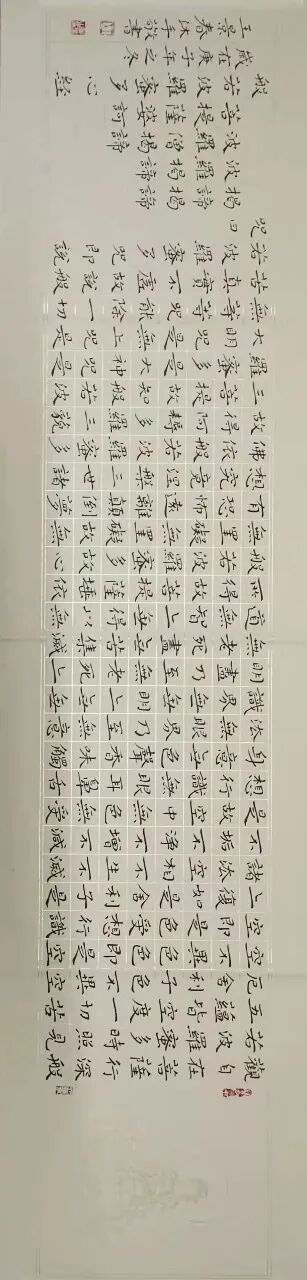 觀自在菩薩行深般
若波羅蜜多時照見
五蘊皆空度一切苦
厄舍利子色不異空
空不異色色即是空
空即是色受想行識
亦復如是舍利子是
諸法空相不生不滅
不垢不淨不增不減
是故空中無色無受
想行識無眼耳鼻舌
身意無色聲香味觸
法無眼界乃至無意
識界無無明亦無無
明盡乃至無老死亦
無老死盡無苦集滅
道無智亦無得以無
所得故菩提薩埵依
般若波羅蜜多故心
無罣礙無罣礙故無
有恐怖遠離顛倒夢
想究竟涅槃三世諸
佛依般若波羅蜜多
故得阿耨多羅三藐
三菩提故知般若波
羅蜜多是大神咒是
大明咒是無上咒是
無等等咒能除一切
苦真實不虛故說般
若波羅蜜多咒即說
咒曰
揭諦揭諦波羅揭諦
波羅僧揭諦
菩提薩婆訶
般若波羅蜜多心經
歲在庚子年之冬
王景春沐手敬書